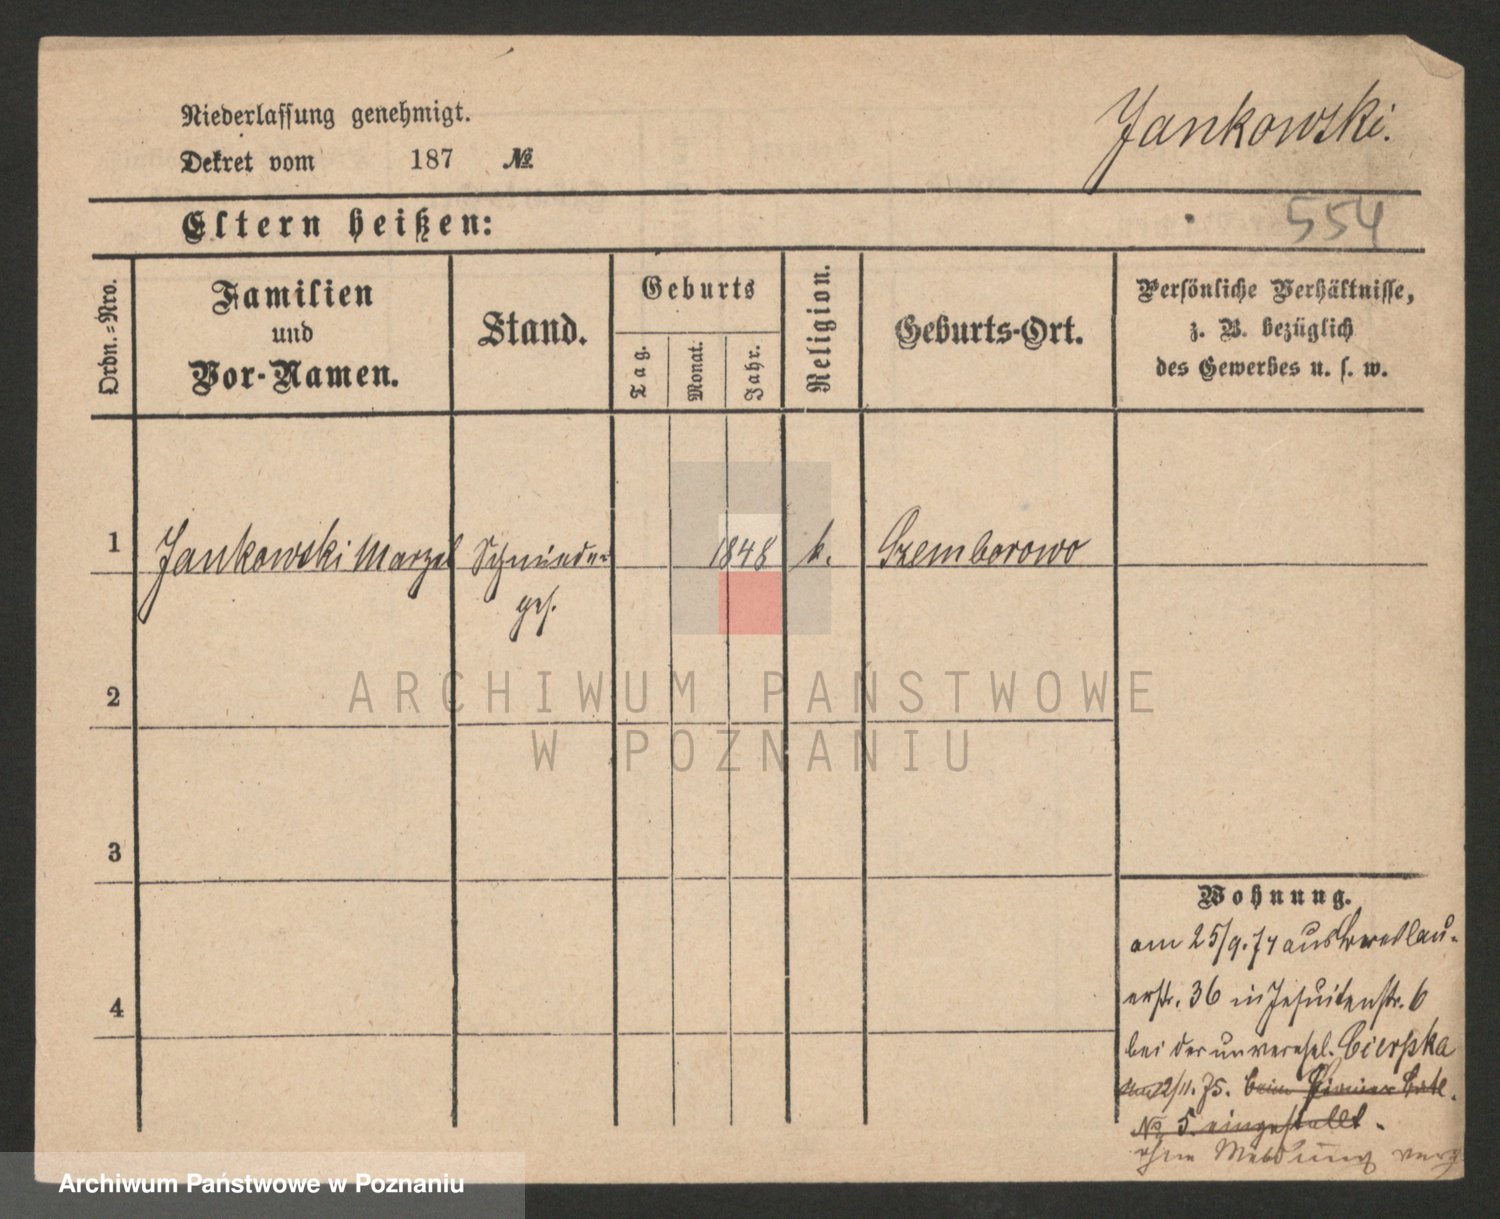 Niederlassung genehmigt.
Jankowski.
Dekret vom 187 №
Eltern heißen:
554
Ordn.=Nro.
Familien
und
Vor-Namen.
Stand.
Geburts
Tag.
Monat.
Jahr.
Religion.
Geburts-Ort.
Persönliche Verhältnisse,
z. B. bezüglich
des Gewerbes u. s. w.
1 Jankowski Marzel 1848 k. Szemborowo
ges.
2
3
4
Wohnung.
am 25/9. 74 aus Breslau-
erstr. 36 in Jesuitenstr. 6
bei der unverehel. Cierpka
2/11. 75. beim Pionier Batl.
No 5. eingestellt.
ohne Meldung verz
ARCHIWUM PAŃSTWOWE
W POZNANIU
Archiwum Państwowe w Poznaniu